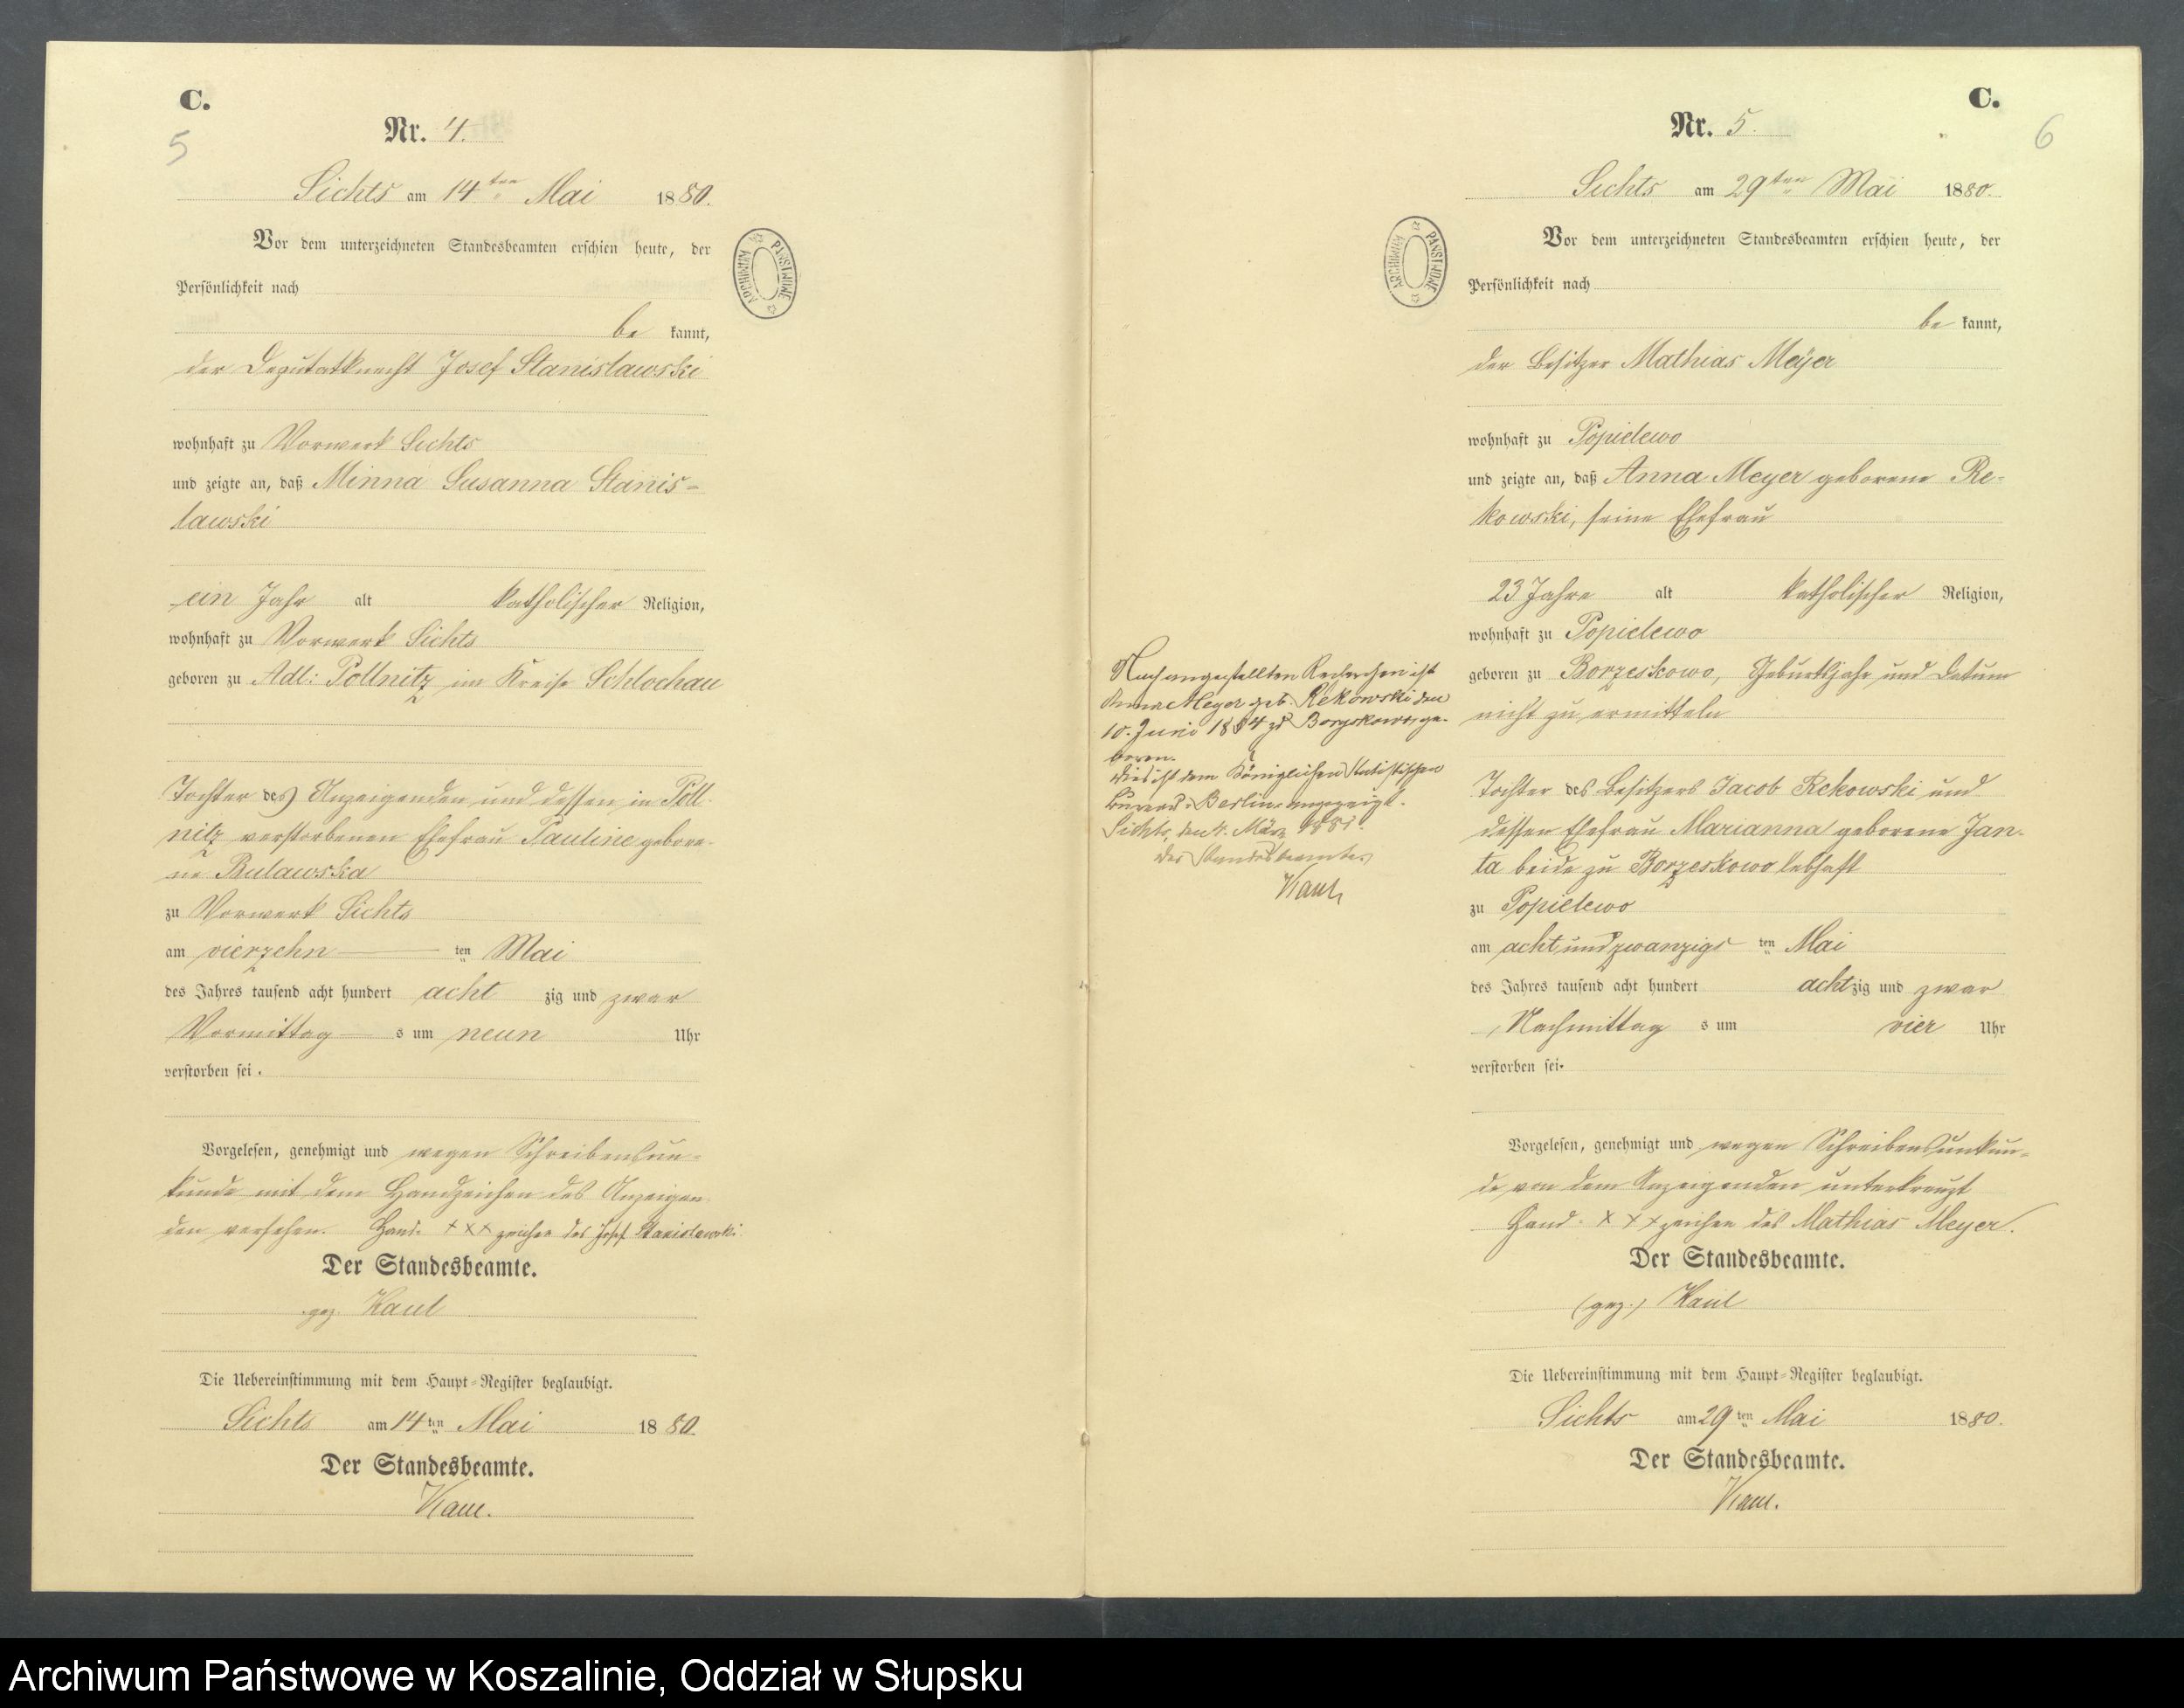 C.
5
Nr. 4.
Sichts am 14ten Mai 1880.
Vor dem unterzeichneten Standesbeamten erschien heute, der
Persönlichkeit nach
be kannt,
der Deputatknecht Josef Stanislawski
wohnhaft zu Vorwerk Sichts
und zeigte an, daß Minna Susanna Stanis-
lawski
ein Jahr alt katholischer Religion,
wohnhaft zu Vorwerk Sichts
geboren zu Adl: Pollnitz im Kreise Schlochau
Tochter des Anzeigenden und dessen in Poll-
nitz verstorbenen Ehefrau Pauline gebore-
ne Bulawska
zu Vorwerk Sichts
am vierzehn ten Mai
des Jahres tausend acht hundert acht zig und zwar
Vormittag s um neun Uhr
verstorben sei.
Vorgelesen, genehmigt und wegen Schreibensun-
kunde mit dem Handzeichen des Anzeigen-
den versehen. Hand- +XX zeichen des Josef Stanislawski.
Der Standesbeamte.
gez. Kaul
Die Uebereinstimmung mit dem Haupt-Register beglaubigt.
Sichts am 14ten Mai 1880.
Der Standesbeamte.
Kaul.
ARCHIWUM PAŃSTWOWE
C.
6
Nr. 5.
Sichts am 29ten Mai 1880.
Vor dem unterzeichneten Standesbeamten erschien heute, der
Persönlichkeit nach
be kannt,
der Besitzer Mathias Meyer
wohnhaft zu Popielewo
und zeigte an, daß Anna Meyer geborene Re-
kowski, seine Ehefrau
23 Jahre alt katholischer Religion,
wohnhaft zu Popielewo
geboren zu Borzeskowo, Geburtsjahr und Datum
nicht zu ermitteln
Tochter des Besitzers Jacob Rekowski und
dessen Ehefrau Marianna geborene Jan-
ta beide zu Borzeskowo lebhaft
zu Popielewo
am acht und zwanzigs ten Mai
des Jahres tausend acht hundert acht zig und zwar
Nachmittag s um vier Uhr
verstorben sei.
Vorgelesen, genehmigt und wegen Schreibensunkun-
de von dem Anzeigenden unterkreuzt
Hand- XX+ zeichen des Mathias Meyer.
Der Standesbeamte.
(gez.) Kaul
Die Uebereinstimmung mit dem Haupt-Register beglaubigt.
Sichts am 29ten Mai 1880.
Der Standesbeamte.
Kaul.
ARCHIWUM PAŃSTWOWE
Nach angestellten Recherchen ist
Anna Meyer geb. Rekowski den
10. Juni zu ge-
boren.
Dies ist dem Königlichen Statistischen
Bureau Berlin angezeigt.
Sichts, den 4. März 1881.
Der Standesbeamte
Kaul
Archiwum Państwowe w Koszalinie, Oddział w Słupsku